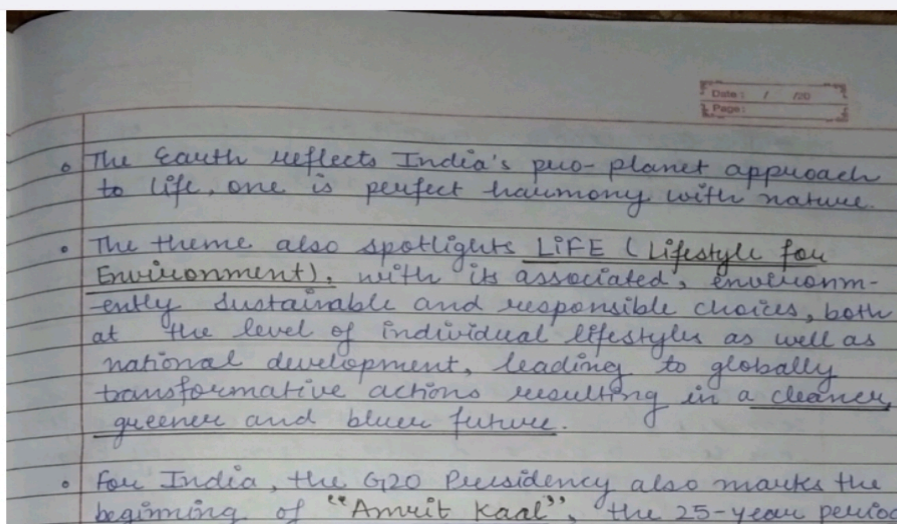 Date : / /20
Page:
The Earth reflects India's pro-planet approach
to life, one is perfect harmony with nature.
The theme also spotlights LiFE (Lifestyle for
Environment), with its associated, environm-
-ently sustainable and responsible choices, both
at the level of individual lifestyles as well as
national development, leading to globally
transformative actions resulting in a cleaner,
greener and bluer future.
For India, the G20 Presidency also marks the
beginning of "Amrit Kaal", the 25-year period